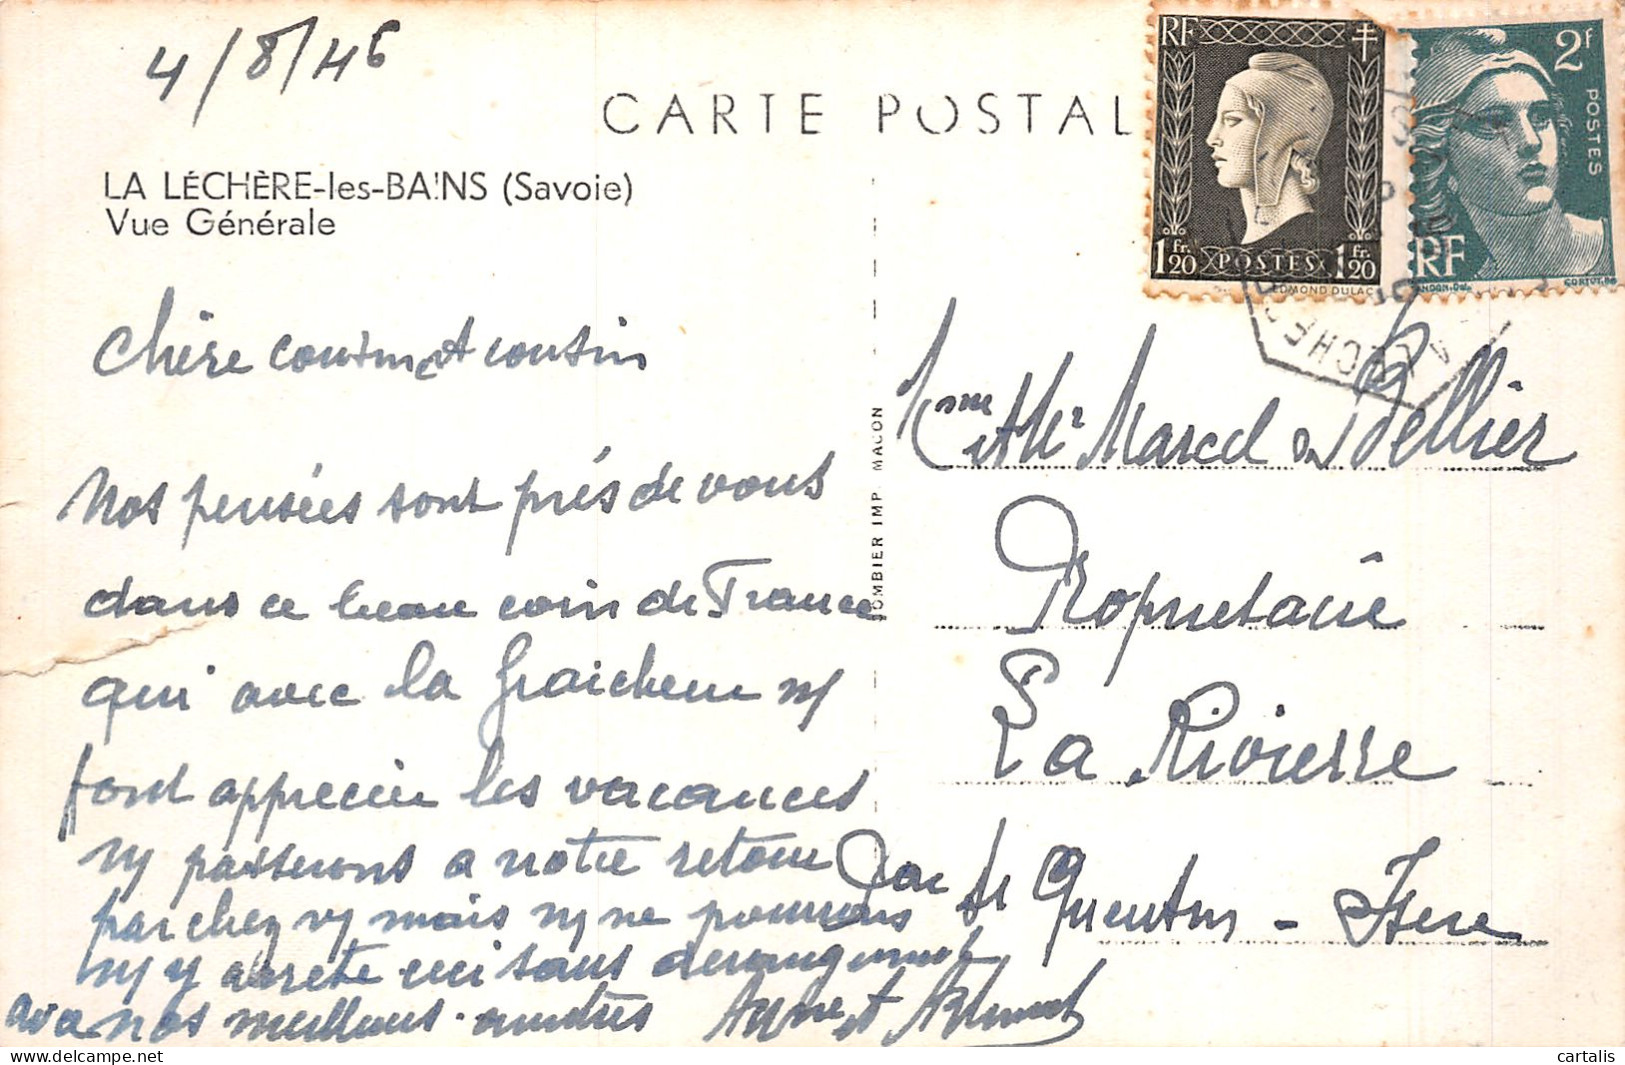 4/8/46
CARTE POSTAL
LA LÉCHÈRE-les-BAINS (Savoie)
Vue Générale
Chère cousine et cousin
Nos pensées sont près de vous
dans ce beau coin de France
qui avec la fraicheur ns
font apprecier les vacances
ns passerons a notre retour
par chez vs mais ns ne pourrons
ns y arrete ceci sans derangement
avec nos meilleurs amitiés
et
OMBIER IMP. MACON
RF
1 Fr. 20 POSTES 1 Fr. 20
EDMOND DULAC
2f
POSTES
RF
GANDON.Del.
CORTOT.sc
LA LECHERE
Mme et Mr Marcel Pellier
Propriétaire
La Rivierre
Par St Quentin - Isere
cartalis